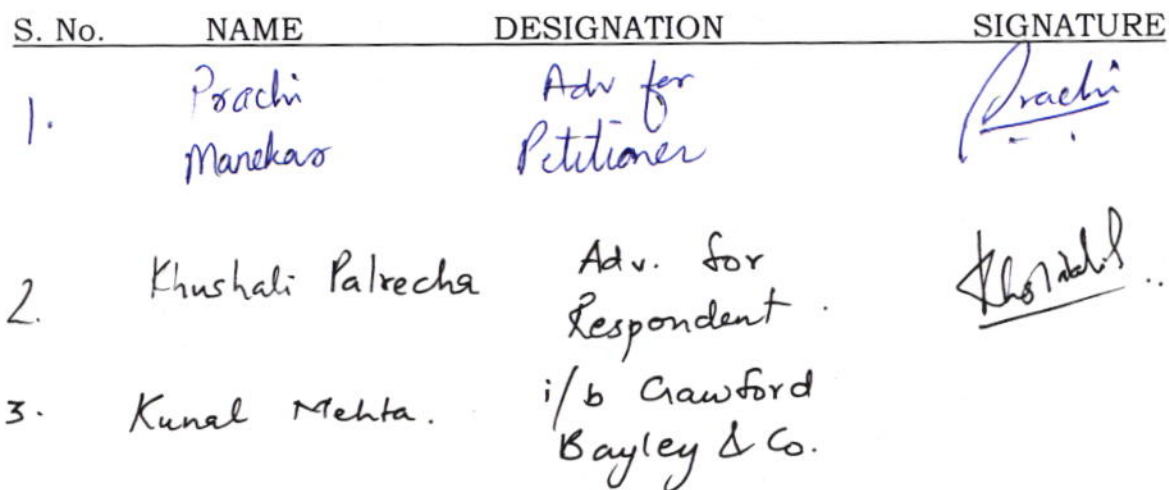 S. No. NAME DESIGNATION SIGNATURE
1. Prachi Adv for Prachi
Manekar Petitioner
2. Khushali Palrecha Adv. for
Respondent.
3. Kunal Mehta. i/b Crawford
Bayley & Co.